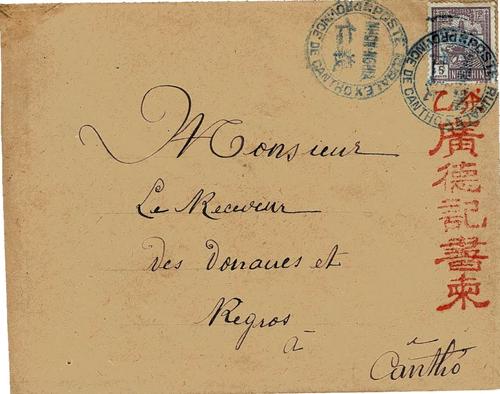 POSTE RURALE
NHON-NGHIA
仁義
PROVINCE DE CANTHO
INDOCHINE
5
POSTE RURALE
PROVINCE DE CANTHO
廣德記書柬
Monsieur
Le Receveur
des Douanes et
Regros
à
Cântho